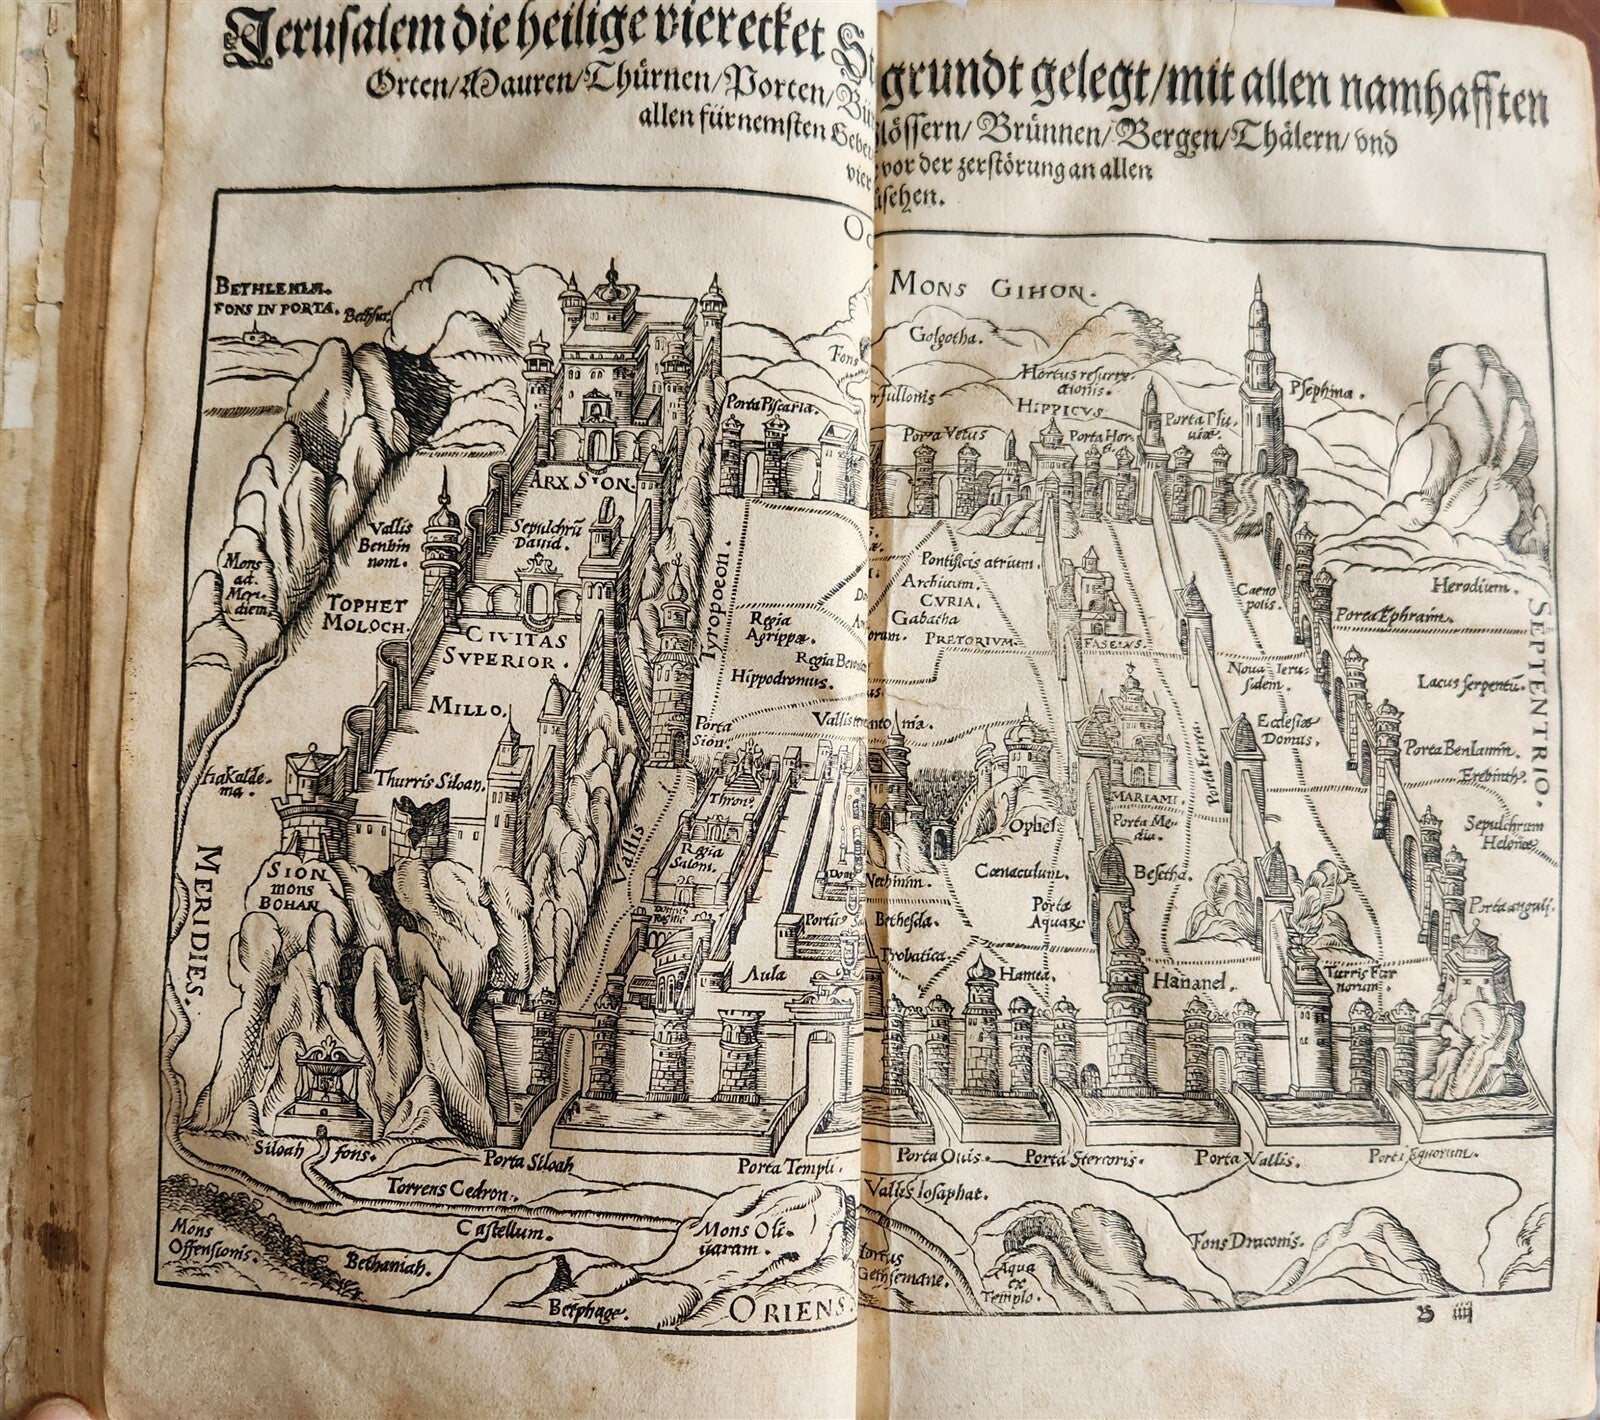 Jerusalem die heilige vierecket St grundt gelegt/mit allen namhafften
Orten/Mauren/Thürnen/Porten/Bü lössern/Brünnen/Bergen/Thälern/vnd
allen fürnemsten Gebeu vor der zerstörung an allen
vier sehen.
Oc
BETHLEHEM.
FONS IN PORTA.
Bethsur.
MONS GIHON.
Golgotha.
Fons
fullonis
Hortus resurre-
ctionis.
HIPPICVS
Psephina.
Porta Piscaria.
Porta Vetus
Porta Hor-
ti.
Porta Plu-
uiæ.
ARX SION.
Vallis
Benhin
nom.
Sepulchrū
Dauid.
Mons
ad.
Meri-
diem.
TOPHET
MOLOCH.
CIVITAS
SVPERIOR.
Tyropoeon.
Regia
Agrippæ.
Regia Bere
Hippodromus.
Pontificis atrium.
Archiuum.
CVRIA.
Gabatha
orum.
PRETORIVM.
FASELVS.
Caeno
polis.
Herodium.
Porta Ephraim.
SEPTENTRIO.
Noua Ieru-
salem.
Lacus serpentū.
MILLO.
Porta
Sion.
Ecclesiæ
Domus.
Porta Beniamin.
Erebinthꝰ.
Hakalde-
ma.
Thurris Siloan.
Thronꝰ.
Porta ferrea
MARIAMI.
Porta Me-
dia.
Ophel
Sepulchrum
Helenæ.
Vallis
Regia
Salom.
MERIDIES.
SION
mons
BOHAN
Domꝰ
Reginæ
Dom
Nethinim.
Cœnaculum.
Besetha.
Porticꝰ
Bethesda.
Porta
Aquarꝰ
Porta anguli.
Probatica.
Aula
Hamea.
Hananel.
Turris Fur
norum.
Siloah fons.
Porta Siloah
Porta Templi.
Porta Ouis.
Porta Stercoris.
Porta Vallis.
Porta Equorum.
Torrens Cedron.
Vallis Iosaphat.
Mons
Offensionis.
Castellum.
Mons Oli-
uarum.
Bethaniah.
Hortus
Gethsemane.
Aqua
ex
Templo.
Fons Draconis.
Betphage.
ORIENS.
B iiij